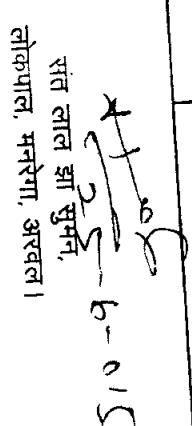 25-6-015
संत लाल झा सुमन,
लोकपाल, मनरेगा, अरवल।